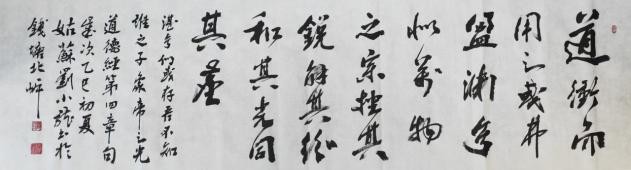 道冲而
用之或弗
盈渊兮
似万物
之宗挫其
锐解其纷
和其光同
其尘
湛兮似或存吾不知
谁之子象帝之先
道德经第四章句
岁次乙巳初夏
姑苏刘小龙书于
钱塘北岸